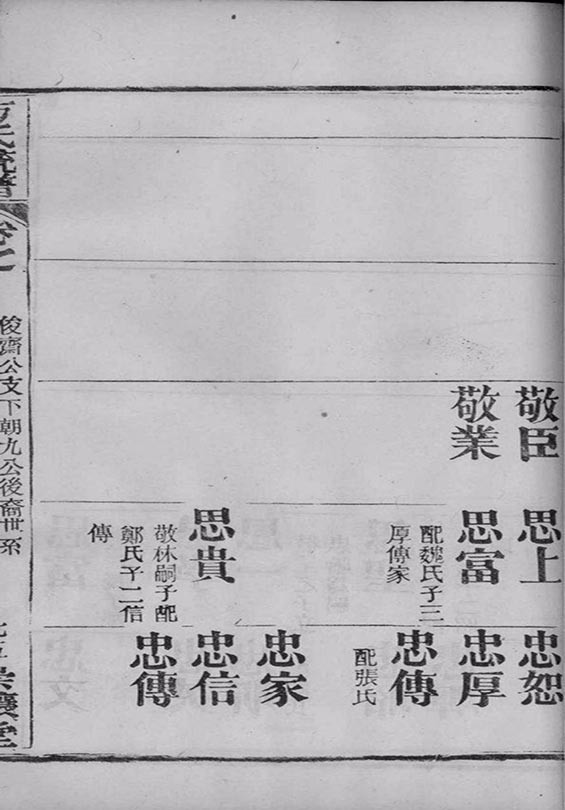 敬臣
敬業
思上
思富
配魏氏子三
厚傳家
思貴
敬林嗣子配
鄭氏子二信
傳
忠恕
忠厚
忠傳
配張氏
忠家
忠信
忠傳
氏統譜
俊齋公支下朝九公後裔世系
堂